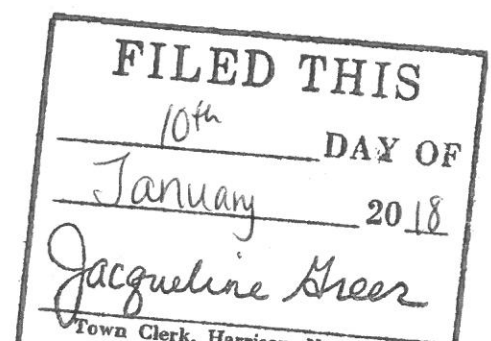 FILED THIS
10th DAY OF
January 2018
Jacqueline Greer
Town Clerk, Harrison, N